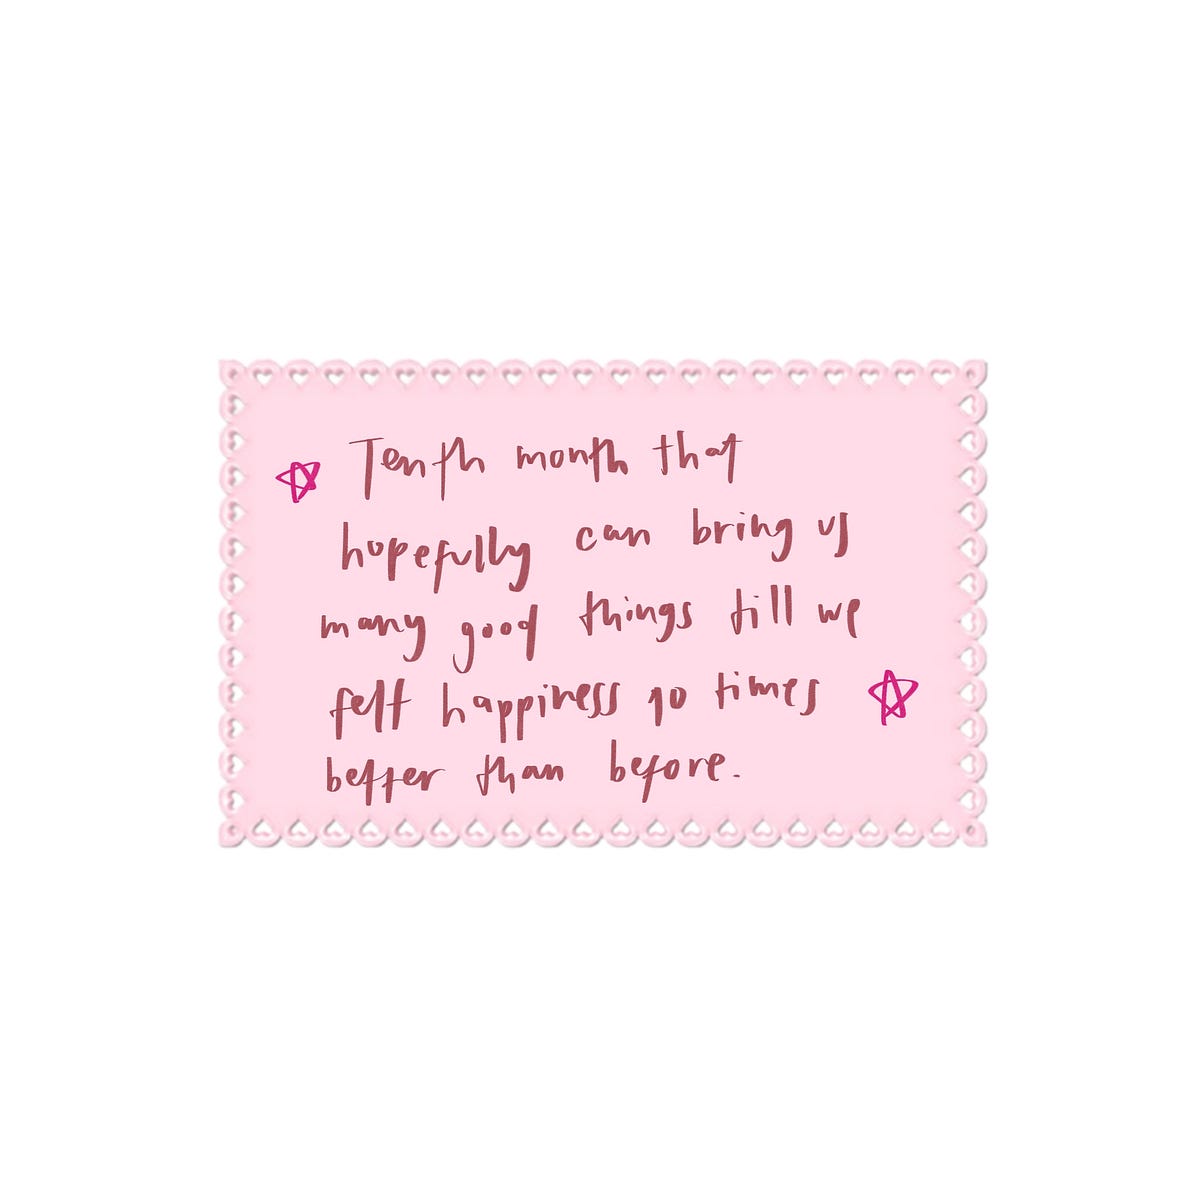 Tenth month that
hopefully can bring us
many good things till we
felt happiness 10 times
better than before.